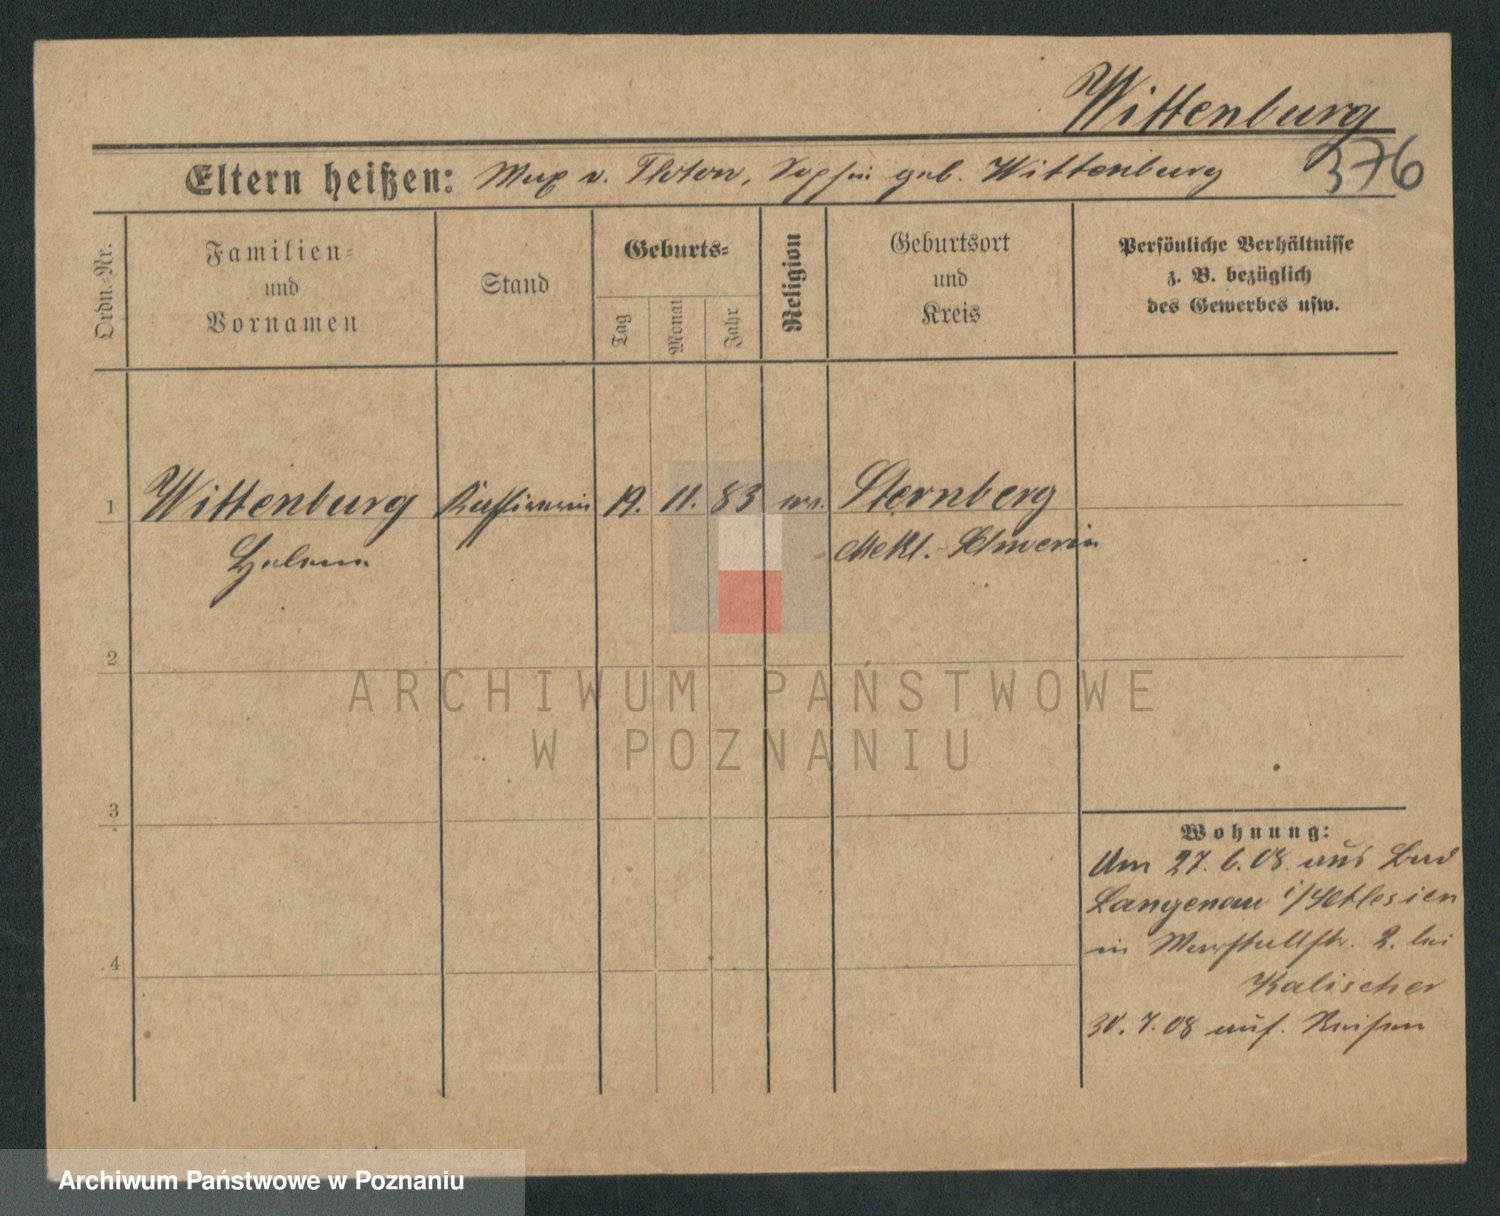 Wittenburg
376
Eltern heißen: Max v. Floton, Sophie geb. Wittenburg
Ordn.-Nr.
Familien-
und
Vornamen
Stand
Geburts-
Tag
Monat
Jahr
Religion
Geburtsort
und
Kreis
Persönliche Verhältnisse
z. B. bezüglich
des Gewerbes usw.
1 Wittenburg Kassiererin 19. 11. 83 ev. Sternberg
Helene Mekl.-Schwerin
2
ARCHIWUM PAŃSTWOWE
W POZNANIU
3
Wohnung:
Am 27.6.08. aus Bad
Langenau i/Schlesien
in Marstallstr. 2. bei
4
Kalischer
30.7.08 auf Reisen
Archiwum Państwowe w Poznaniu